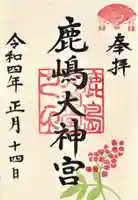 奉拝
鹿嶋大神宮
令和四年正月十四日